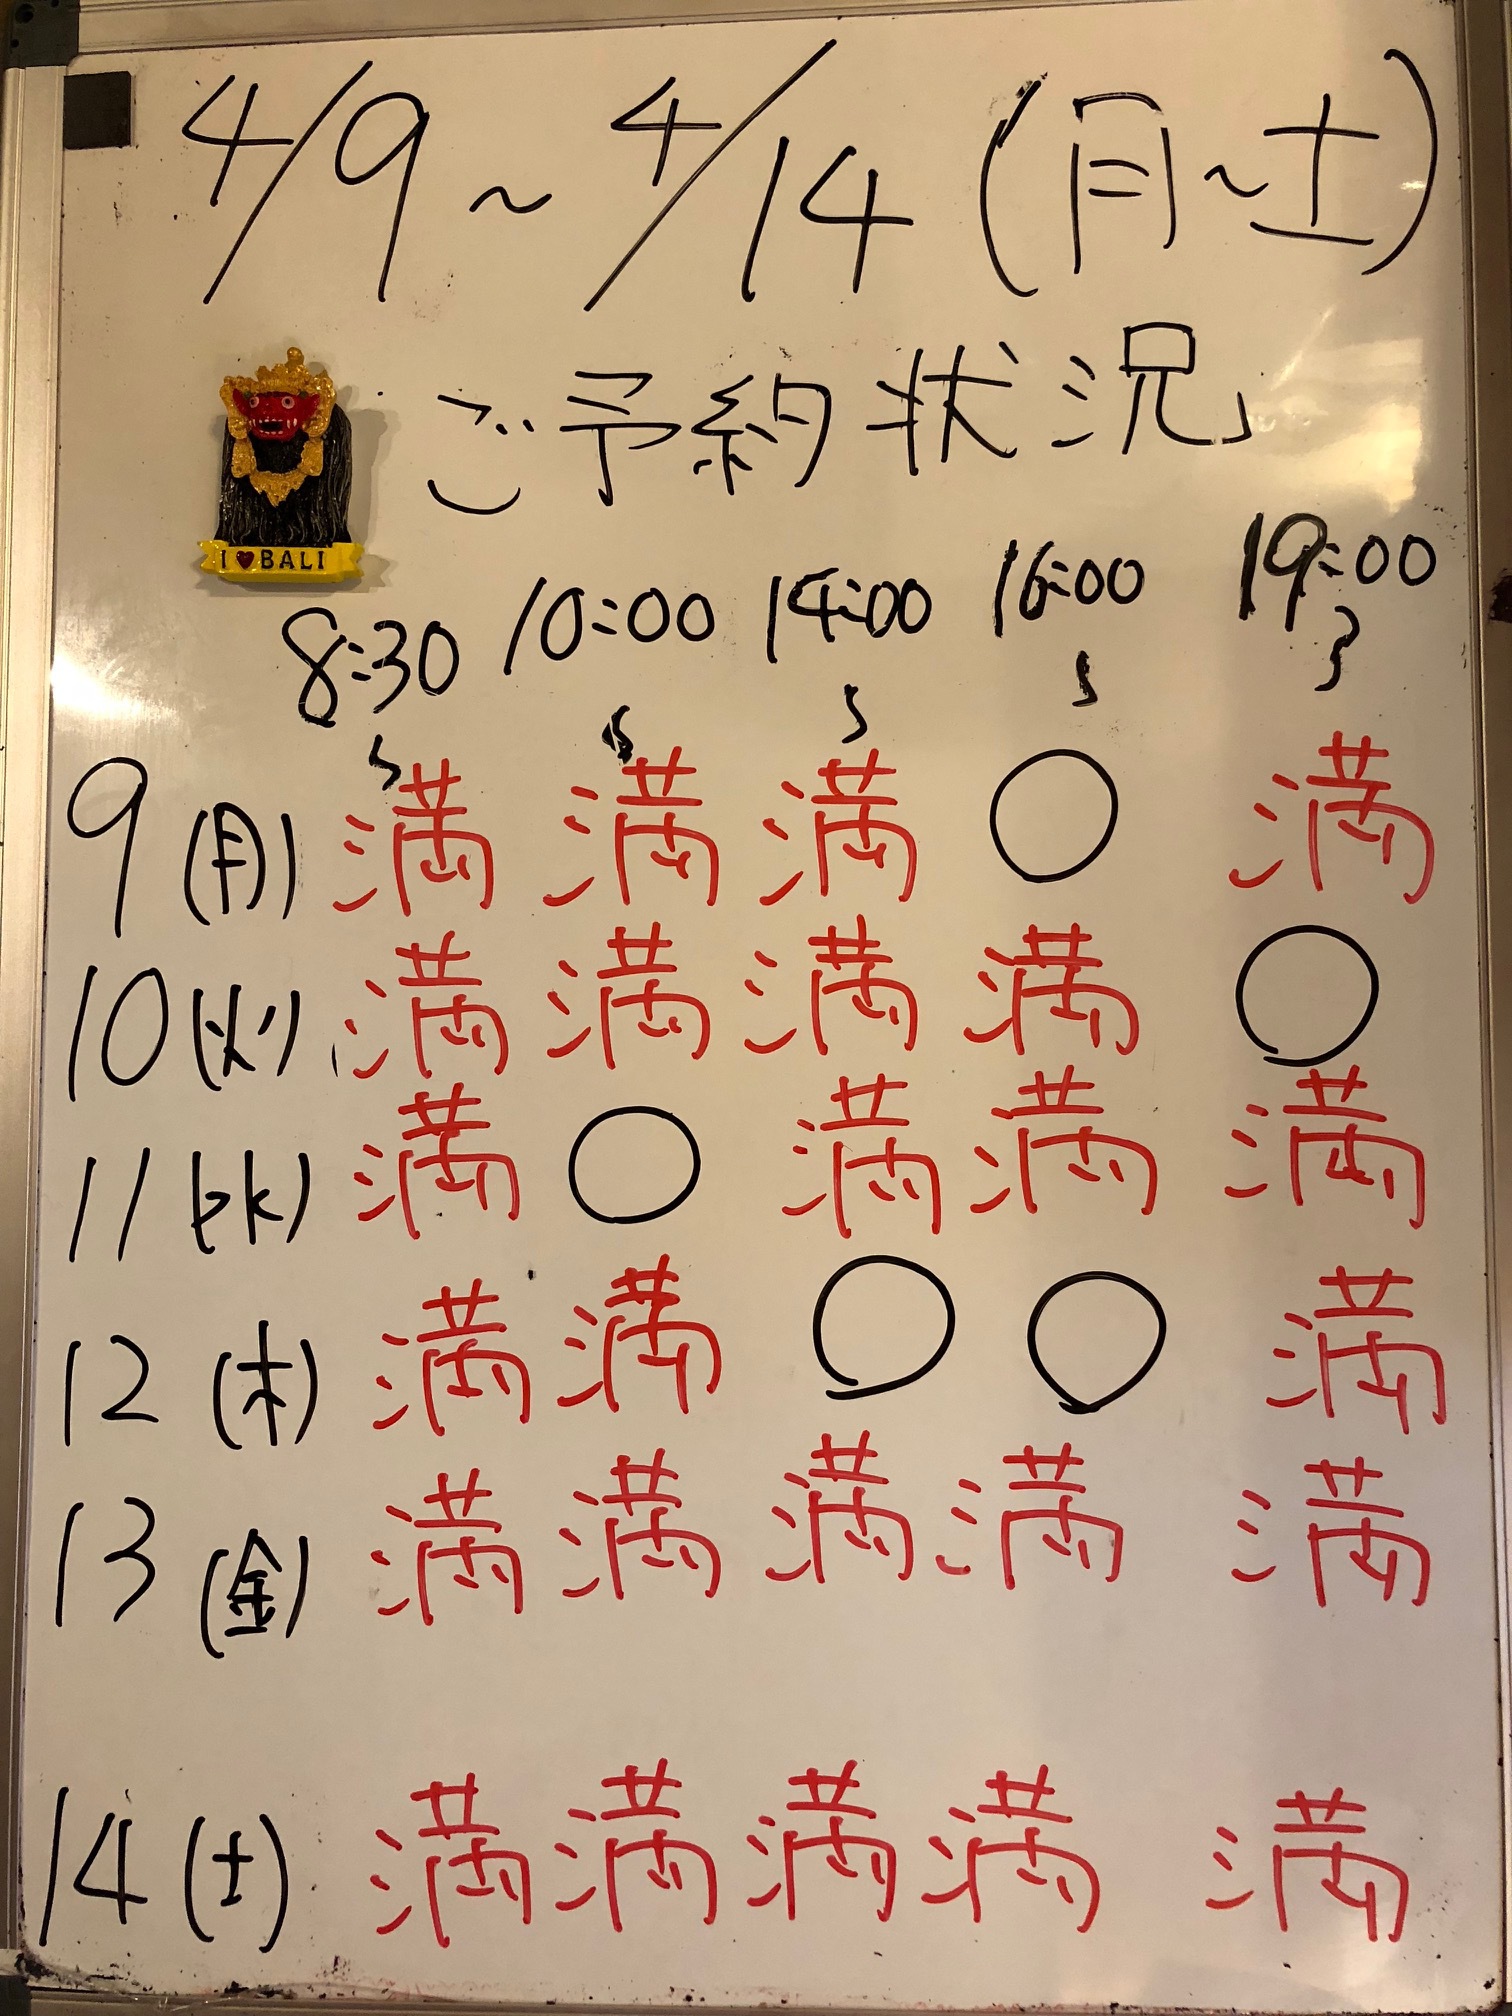 4/9～4/14(月～土)
ご予約状況
I ♥ BALI
8:30～ 10:00～ 14:00～ 16:00～ 19:00～
9(月) 満 満 満 ○ 満
10(火) 満 満 満 満 ○
11(水) 満 ○ 満 満 満
12(木) 満 満 ○ ○ 満
13(金) 満 満 満 満 満
14(土) 満 満 満 満 満